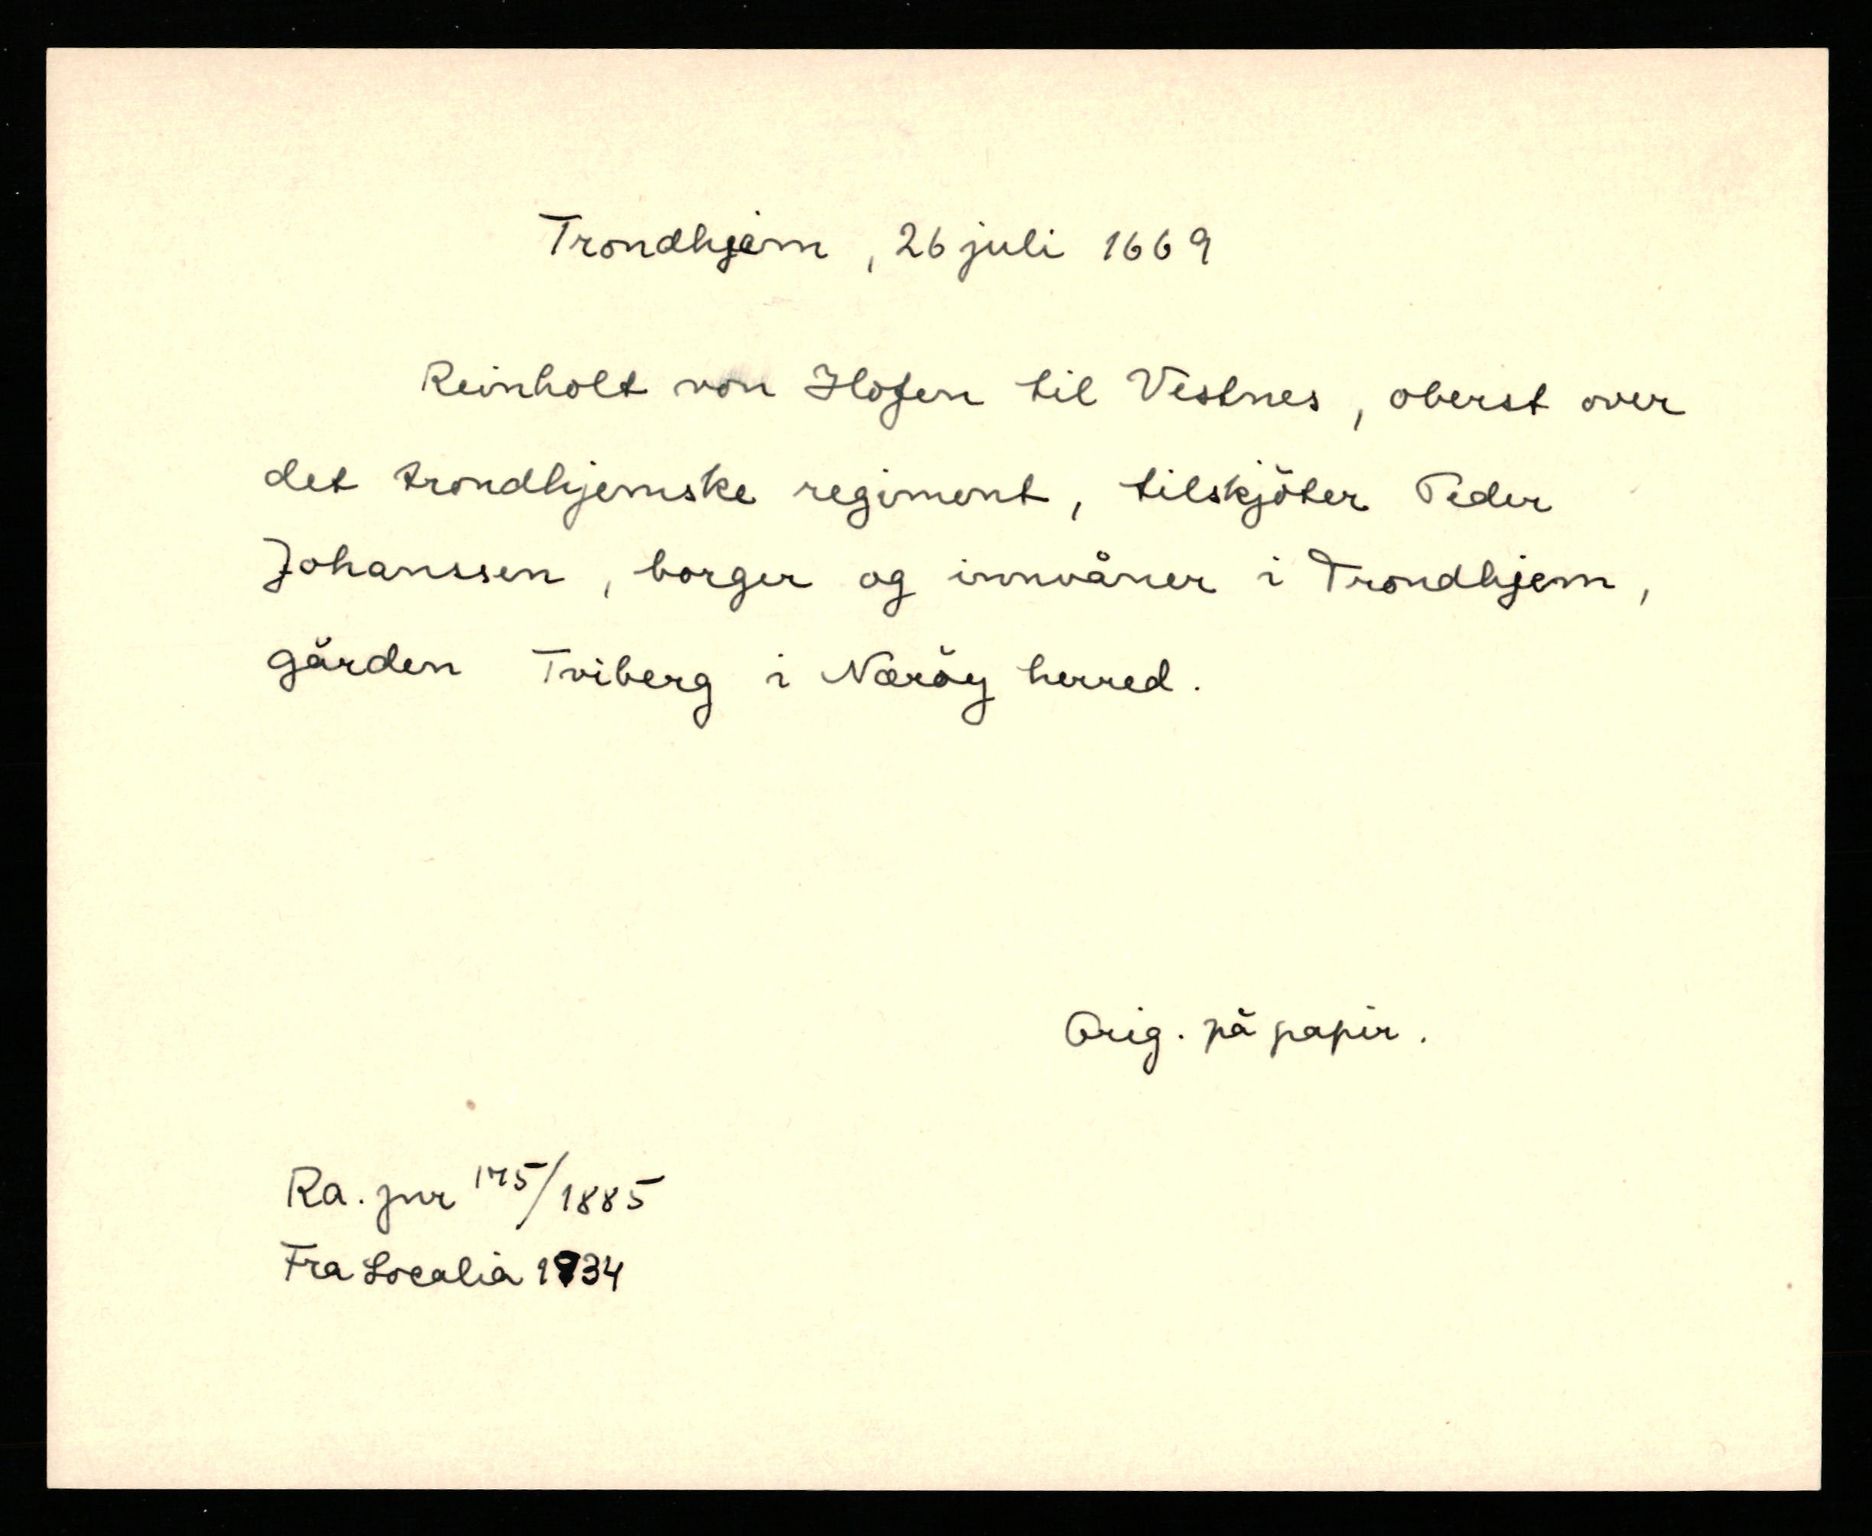 Trondhjem, 26 juli 1669
Reinholt von Hofen til Vestnes, oberst over
det trondhjemske regiment, tilskjöter Peder
Johanssen, borger og innvåner i Trondhjem,
gården Tviberg i Næröy herred.
Orig. på papir.
Ra. jnr 175/1885
Fra Localia 1934